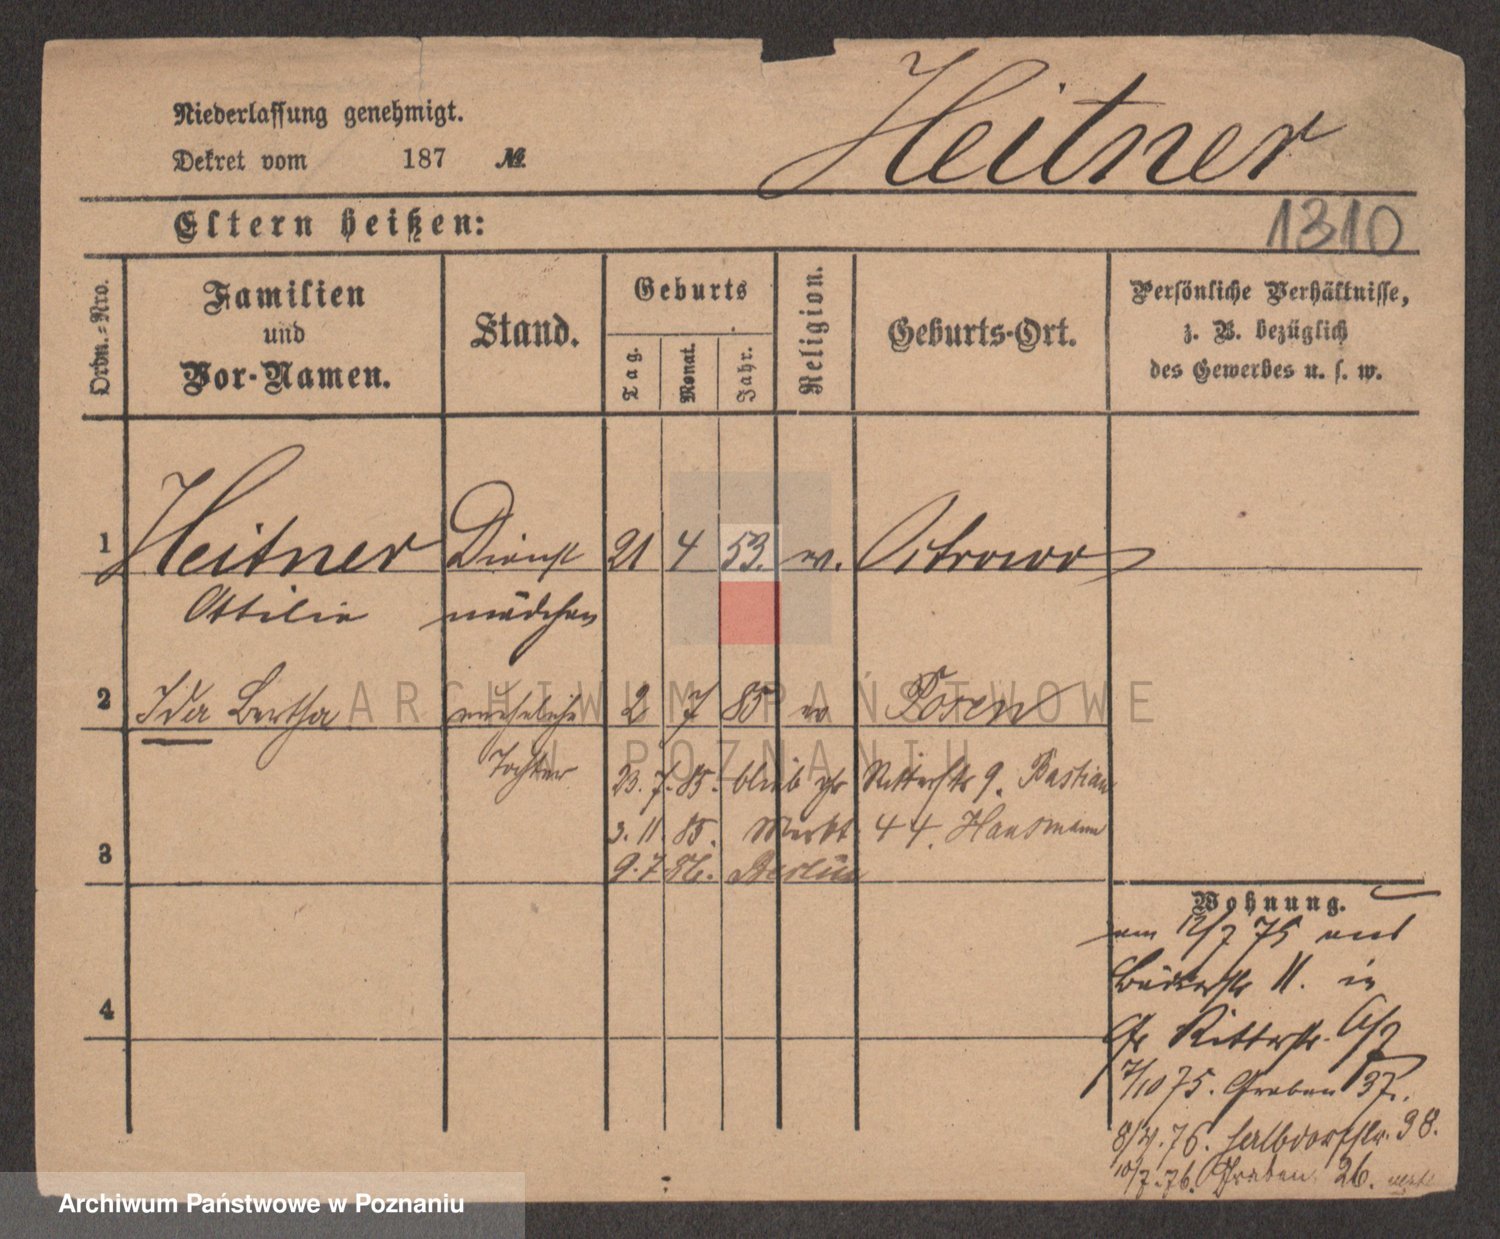 Heitner
Niederlassung genehmigt.
Dekret vom 187 №
Eltern heißen:
1310
Ordn.-Nro.
Familien
und
Vor-Namen.
Stand.
Geburts
Tag.
Monat.
Jahr.
Religion.
Geburts-Ort.
Persönliche Verhältnisse,
z. B. bezüglich
des Gewerbes u. s. w.
1 Heitner Dienst 21 4 53. Ostrowo
Ottilie mädchen
2 Ida Bertha uneheliche 2 7 85 Posen
Tochter
23. 7. 85. Ritterstr 9. Bastian
3. 11. 85. Markt 44. Hausmann
3
9. 7 86. Berlin
Wohnung.
12/7 75
11. in
Gr Ritterstr.
4
7/10 75. Graben 37.
76. Halbdorfstr. 38.
10/7. 76. Graben 26.
ARCHIWUM PAŃSTWOWE
W POZNANIU
Archiwum Państwowe w Poznaniu